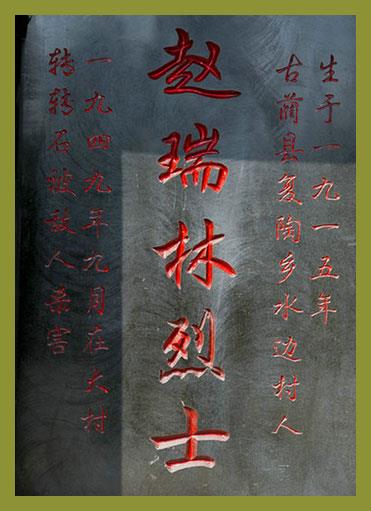 生于一九一五年
古蔺县复陶乡水边村人
赵瑞林烈士
一九四九年九月在大村
转转石被敌人杀害